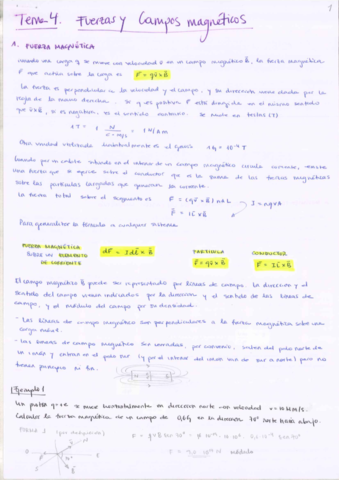 1
Tema 4. Fuerzas y Campos magnéticos
1. FUERZA MAGNÉTICA
Cuando una carga q se mueve una velocidad v en un campo magnético B, la fuerza magnética
F que actúa sobre la carga es F = qv × B
La fuerza es perpendicular a la velocidad y al campo, y su dirección viene dada por la
regla de la mano derecha. Si q es positiva F está dirigida en el mismo sentido
que v × B, si es negativa, es el sentido contrario. Se mide en teslas (T)
1T = 1 N / = 1 N/Am
Otra unidad utilizada habitualmente es el gauss 1G = 10⁻⁴ T
Cuando por un cable situado en el interior de un campo magnético circula corriente, existe
una fuerza que se ejerce sobre el conductor que es la suma de las fuerzas magnéticas
sobre las partículas cargadas que generan la corriente.
La fuerza total sobre el segmento es F = (qv × B) nAL
F = Il × B
Para generalizar la fórmula a cualquier sistema
FUERZA MAGNÉTICA
SOBRE UN ELEMENTO
DE CORRIENTE
dF = Idl × B
PARTÍCULA
F = qv × B
CONDUCTOR
F = Il × B
El campo magnético B puede ser representado por líneas de campo. La dirección y el
sentido del campo vienen indicados por la dirección y el sentido de las líneas de
campo, y el módulo del campo por su densidad.
- Las líneas de campo magnético son perpendiculares a la fuerza magnética sobre una
carga móvil.
- Las líneas de campo magnético son cerradas, por convenio, salen del polo norte de
un imán y entran en el polo sur (y por el interior del imán van de sur a norte) pero no
tienen principio ni fin.
Ejemplo 1
Un protón q=+e se mueve horizontalmente en dirección norte con velocidad
Calcular la fuerza magnética de un campo de 0,6G en la dirección 70° norte hacia abajo.